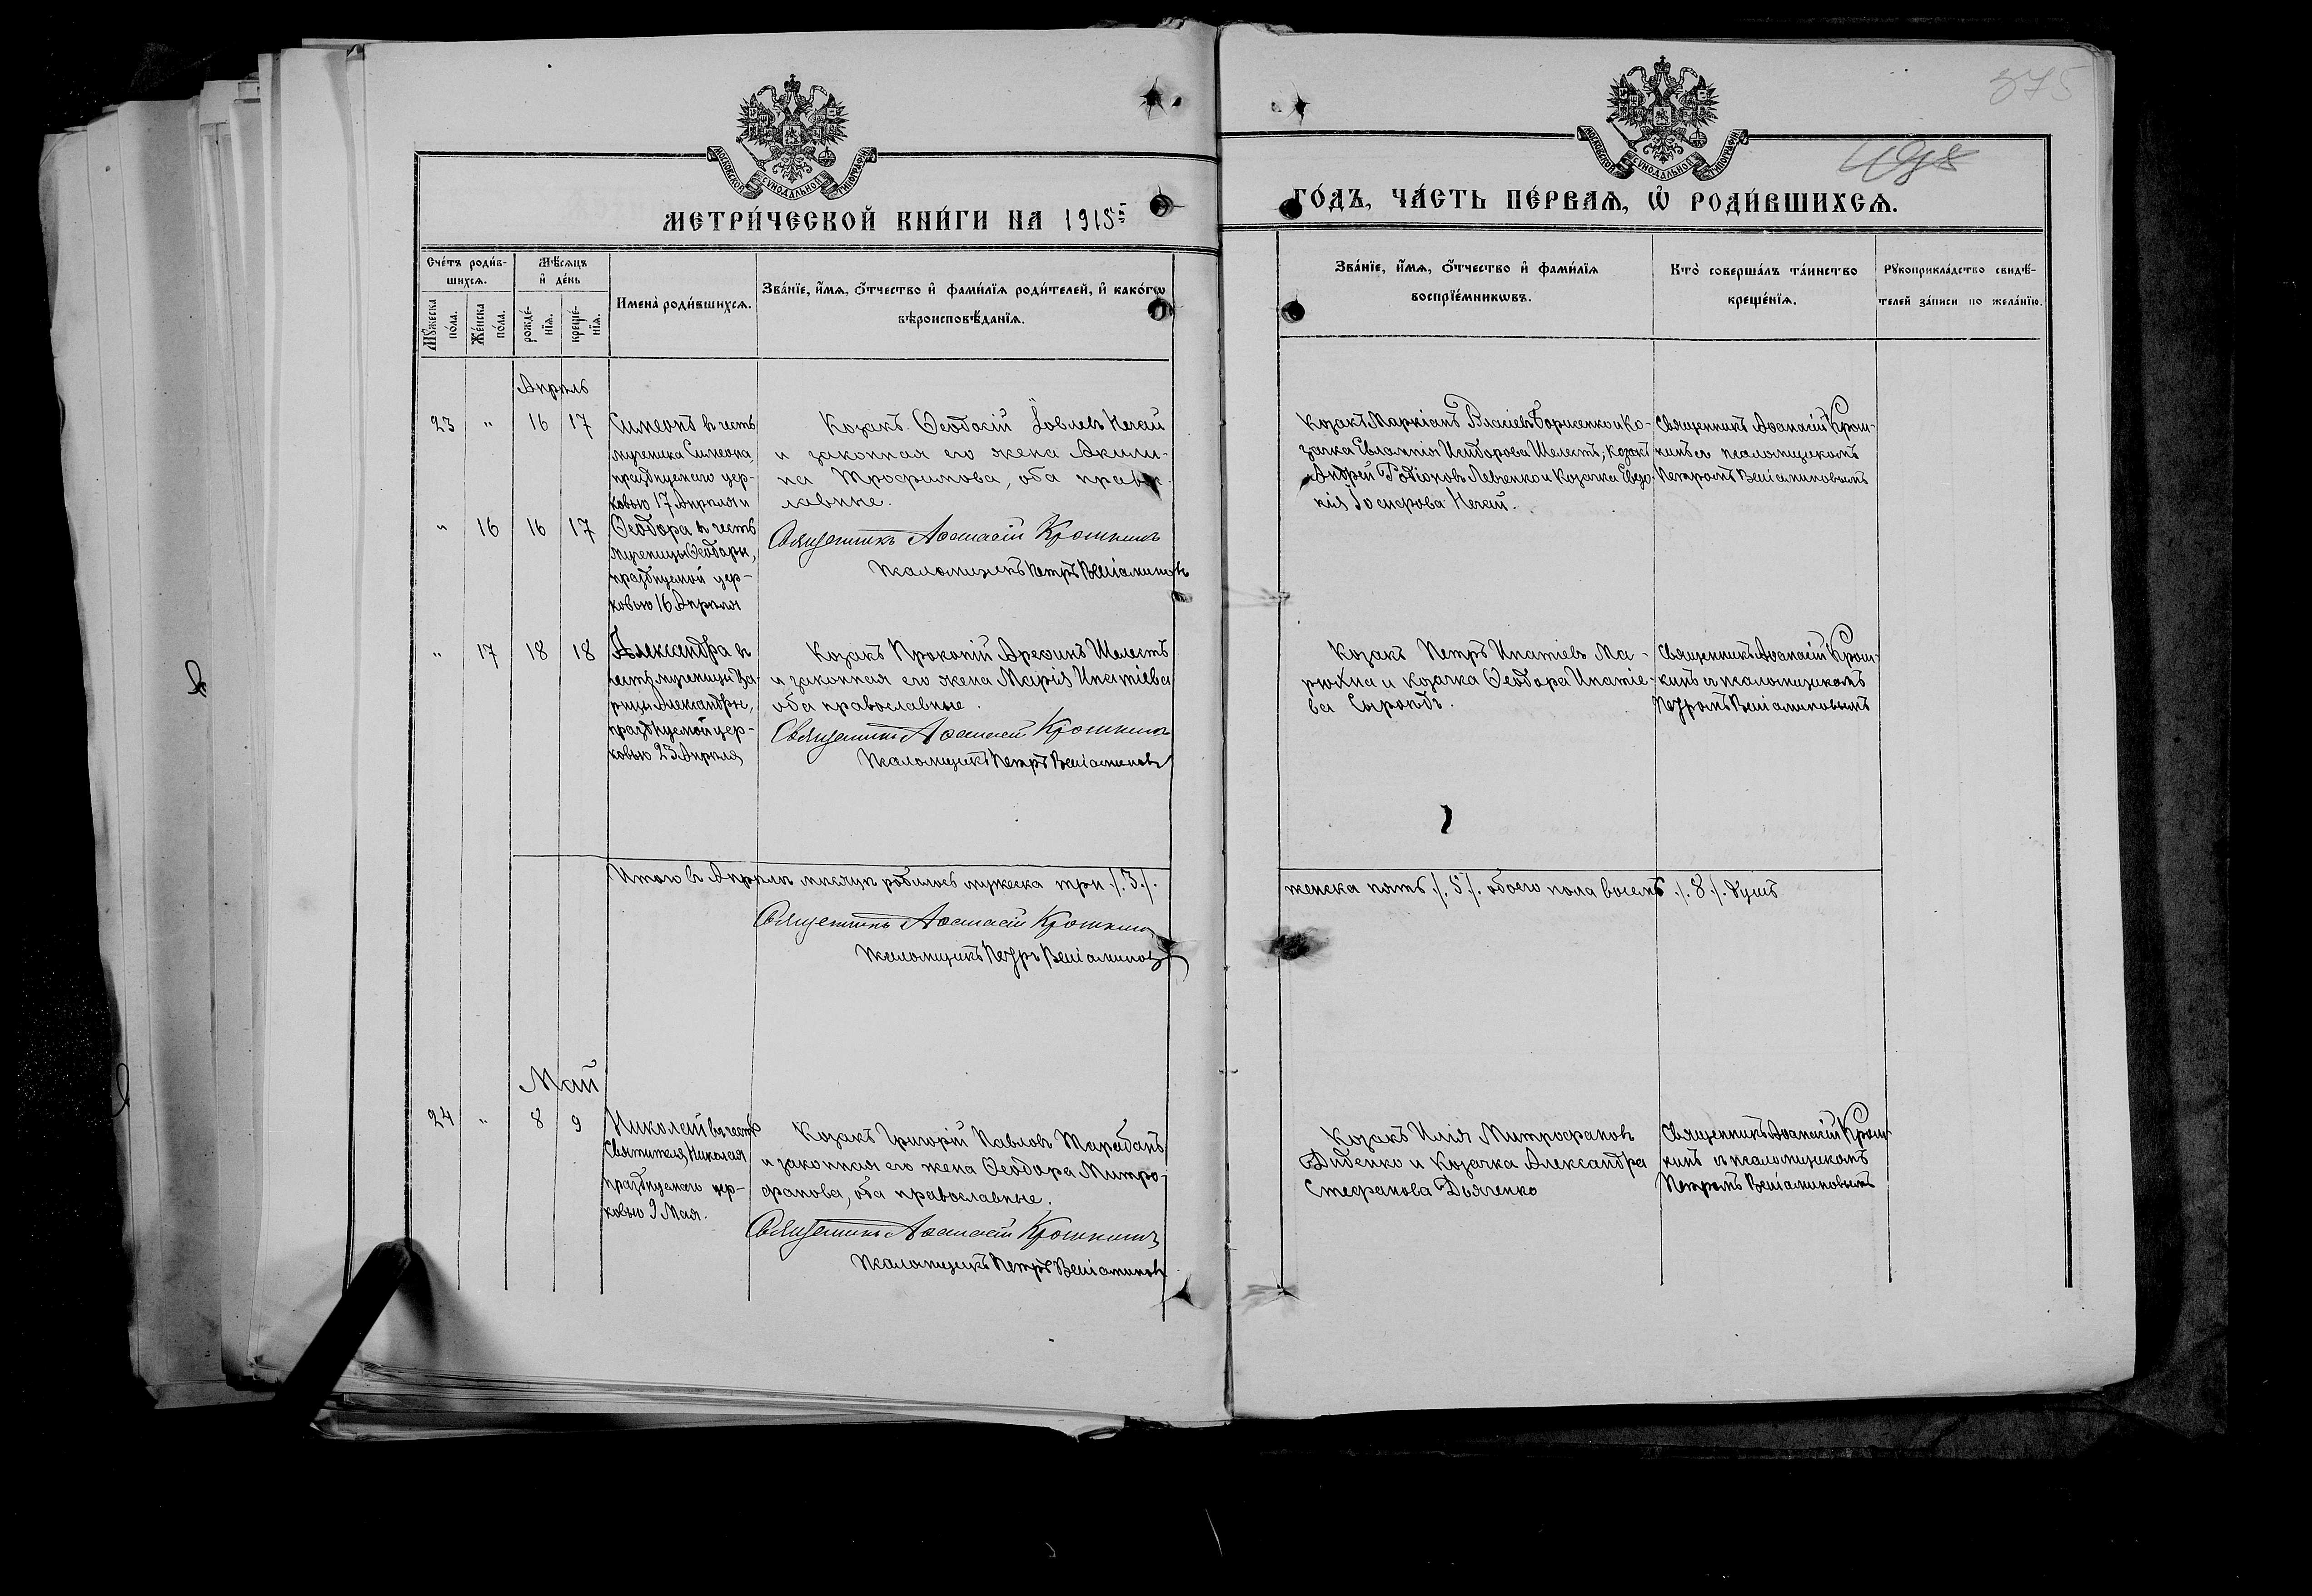 375
498
МОСКОВСКОЙ СѴНОДАЛЬНОЙ ТИПОГРАФІИ
МОСКОВСКОЙ СѴНОДАЛЬНОЙ ТИПОГРАФІИ
МЕТРИ́ЧЕСКОЙ КНИ́ГИ НА 1915й
ГО́ДЪ, ЧА́СТЬ ПЕ́РВАѦ, Ѿ РОДИ́ВШИХСѦ.
Сче́тъ роди́в-
шихсѧ.
Мꙋ́жеска
по́ла.
Же́нска
по́ла.
Мѣ́сѧцъ
и҆ де́нь
рожде́-
нїѧ.
креще́-
нїѧ.
Имена̀ роди́вшихсѧ.
Зва́нїе, и҆́мѧ, ѻ҆́тчество и҆ фами́лїѧ роди́телей, и҆ како́гѡ
вѣроисповѣ́данїѧ.
Зва́нїе, и҆́мѧ, ѻ҆́тчество и҆ фами́лїѧ
воспрїе́мникѡвъ.
Кто̀ соверша́лъ та́инство
креще́нїѧ.
Рꙋкоприкла́дство свидѣ́-
телей за́писи по жела́нїю.
Апрѣль
23 " 16 17
Симеонъ въ честь
мученика Симеона,
празднуемаго цер-
ковью 17 Апрѣля и
Козакъ Ѳеодосій Іовлевъ Нечай
и законная его жена Акили-
на Трофимова, оба право-
лавные.
Козакъ Маркіанъ Власіевъ Борисенко и Ко-
зачка Евлампія Исидорова Шелестъ; козакъ
Андрей Родіоновъ Левченко и Козачка Евдо-
кія Іосифова Нечай.
Священникъ Аѳанасій Крош-
кинъ съ псаломщикомъ
Петромъ Веніаминовымъ
" 16 16 17
Ѳеодора въ честь
мученицы Ѳеодоры,
празднуемой цер-
ковью 16 Апрѣля
Священникъ Аѳанасій Крошкинъ
Псаломщикъ Петръ Веніаминовъ
" 17 18 18
Александра въ
честь мученицы Ца-
рицы Александры,
празднуемой цер-
ковью 23 Апрѣля
Козакъ Прокопій Шелестъ
и законная его жена Марія Ипатіева
оба православные.
Священникъ Аѳанасій Крошкинъ
Псаломщикъ Петръ Веніаминовъ
Козакъ Петръ Ипатіевъ Ма-
рюхна и козачка Ѳеодора Ипатіе-
ва
Священникъ Аѳанасій Крош-
кинъ съ псаломщикомъ
Петромъ Веніаминовымъ
Итого въ Апрѣлѣ мѣсяцѣ родилось мужеска три ./.3./.
женска пять ./.5./. обоего пола восемь ./.8./. душъ
Священникъ Аѳанасій Крошкинъ
Псаломщикъ Петръ Веніаминовъ
Май
24 " 8 9
Николай въ честь
Святителя Николая
празднуемаго цер-
ковью 9 Мая.
Козакъ Григорій Павловъ Тарабанъ
и законная его жена Ѳеодора Митро-
фанова, оба православные.
Священникъ Аѳанасій Крошкинъ
Псаломщикъ Петръ Веніаминовъ
Козакъ Илія Митрофановъ
Диденко и Козачка Александра
Стефанова Дьяченко
Священникъ Аѳанасій Крош-
кинъ съ псаломщикомъ
Петромъ Веніаминовымъ